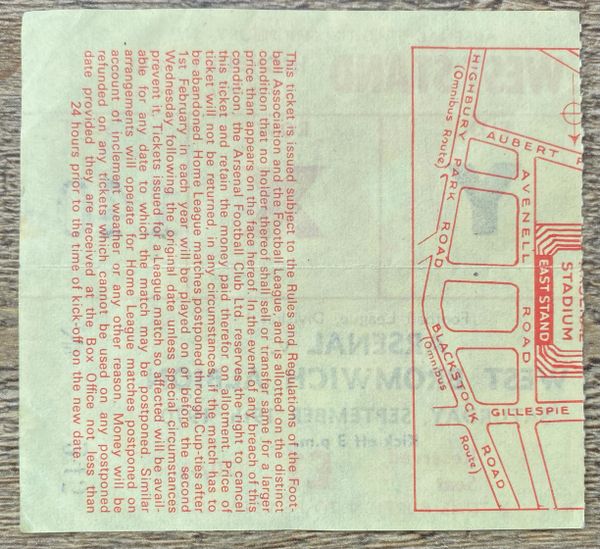 This ticket is issued subject to the Rules and Regulations of the Foot-
ball Association and the Football League, and is allotted on the distinct
condition that no holder thereof shall sell or transfer same for a larger
price than appears on the face hereof. In the event of any breach of this
condition, the Arsenal Football Club Ltd. reserve the right to cancel
this ticket and retain the money paid therefor on allotment. Price of
ticket will not be returned in any circumstances. If the match has to
be abandoned. Home League matches postponed through Cup-ties after
1st February in each year will be played on or before the second
Wednesday following the original date unless special circumstances
prevent it. Tickets issued for a League match so affected will be avail-
able for any date to which the match may be postponed. Similar
arrangements will operate for Home League matches postponed on
account of inclement weather or any other reason. Money will be
refunded on any tickets which cannot be used on any postponed
date provided they are received at the Box Office not less than
24 hours prior to the time of kick-off on the new date.
HIGHBURY PARK ROAD
(Omnibus Route)
AUBERT
AVENELL ROAD
STADIUM
EAST STAND
GILLESPIE
BLACKSTOCK ROAD
(Omnibus Route)
WEST STAND
Football League
ARSENAL
WEST BROMWICH ALBION
SEPTEMBER
Kick-off 3 p.m.